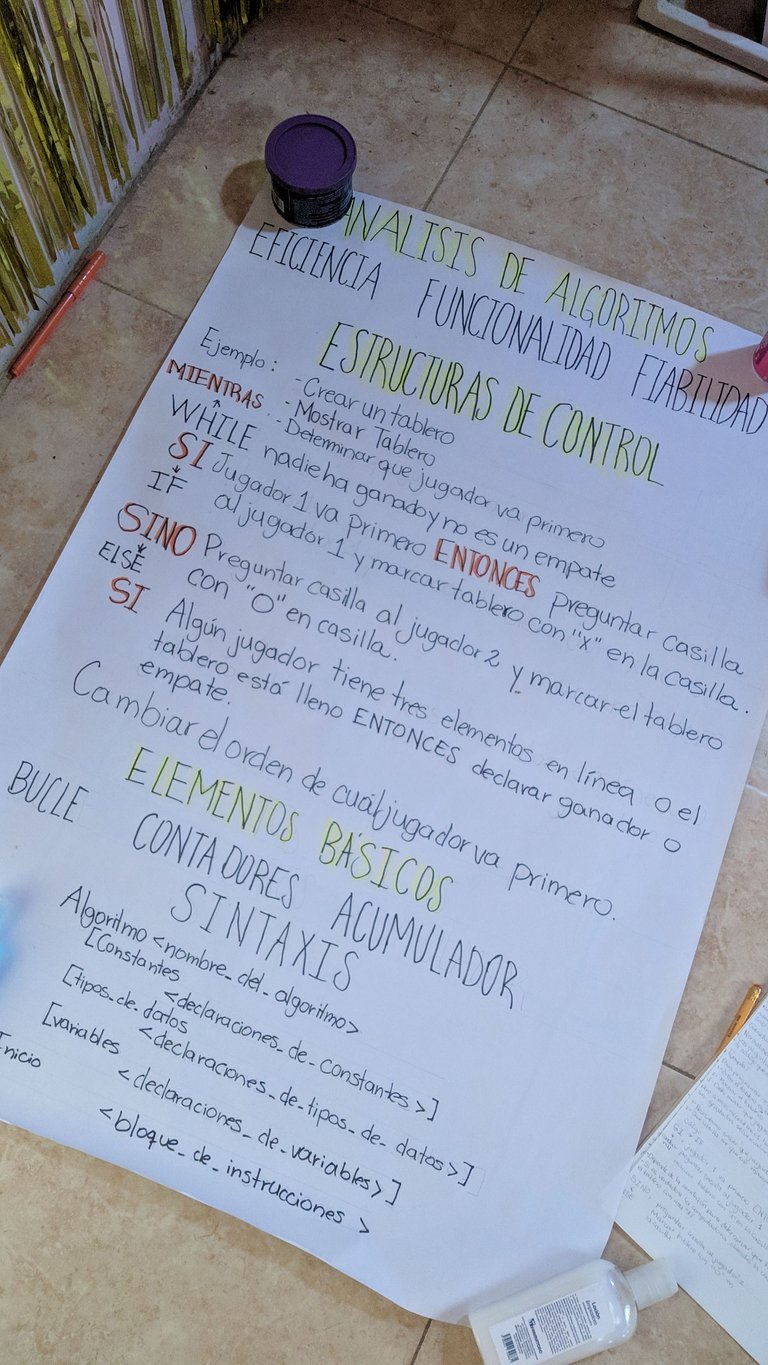 ANALISIS DE ALGORITMOS
EFICIENCIA FUNCIONALIDAD FIABILIDAD
ESTRUCTURAS DE CONTROL
Ejemplo: -Crear un tablero
-Mostrar Tablero
-Determinar que jugador va primero
MIENTRAS
WHILE nadie ha ganado y no es un empate
SI Jugador 1 va primero ENTONCES preguntar casilla
IF al jugador 1 y marcar tablero con "X" en la casilla.
SINO Preguntar casilla al jugador 2 y marcar el tablero
ELSE con "O" en casilla.
SI Algún jugador tiene tres elementos en línea o el
tablero está lleno ENTONCES declarar ganador o
empate.
Cambiar el orden de cuál jugador va primero.
ELEMENTOS BÁSICOS
BUCLE CONTADORES ACUMULADOR
SINTAXIS
Algoritmo <nombre_del_algoritmo>
[Constantes
<declaraciones_de_constantes>]
[tipos_de_datos
<declaraciones_de_tipos_de_datos>]
[variables
<declaraciones_de_variables>]
Inicio
<bloque_de_instrucciones>